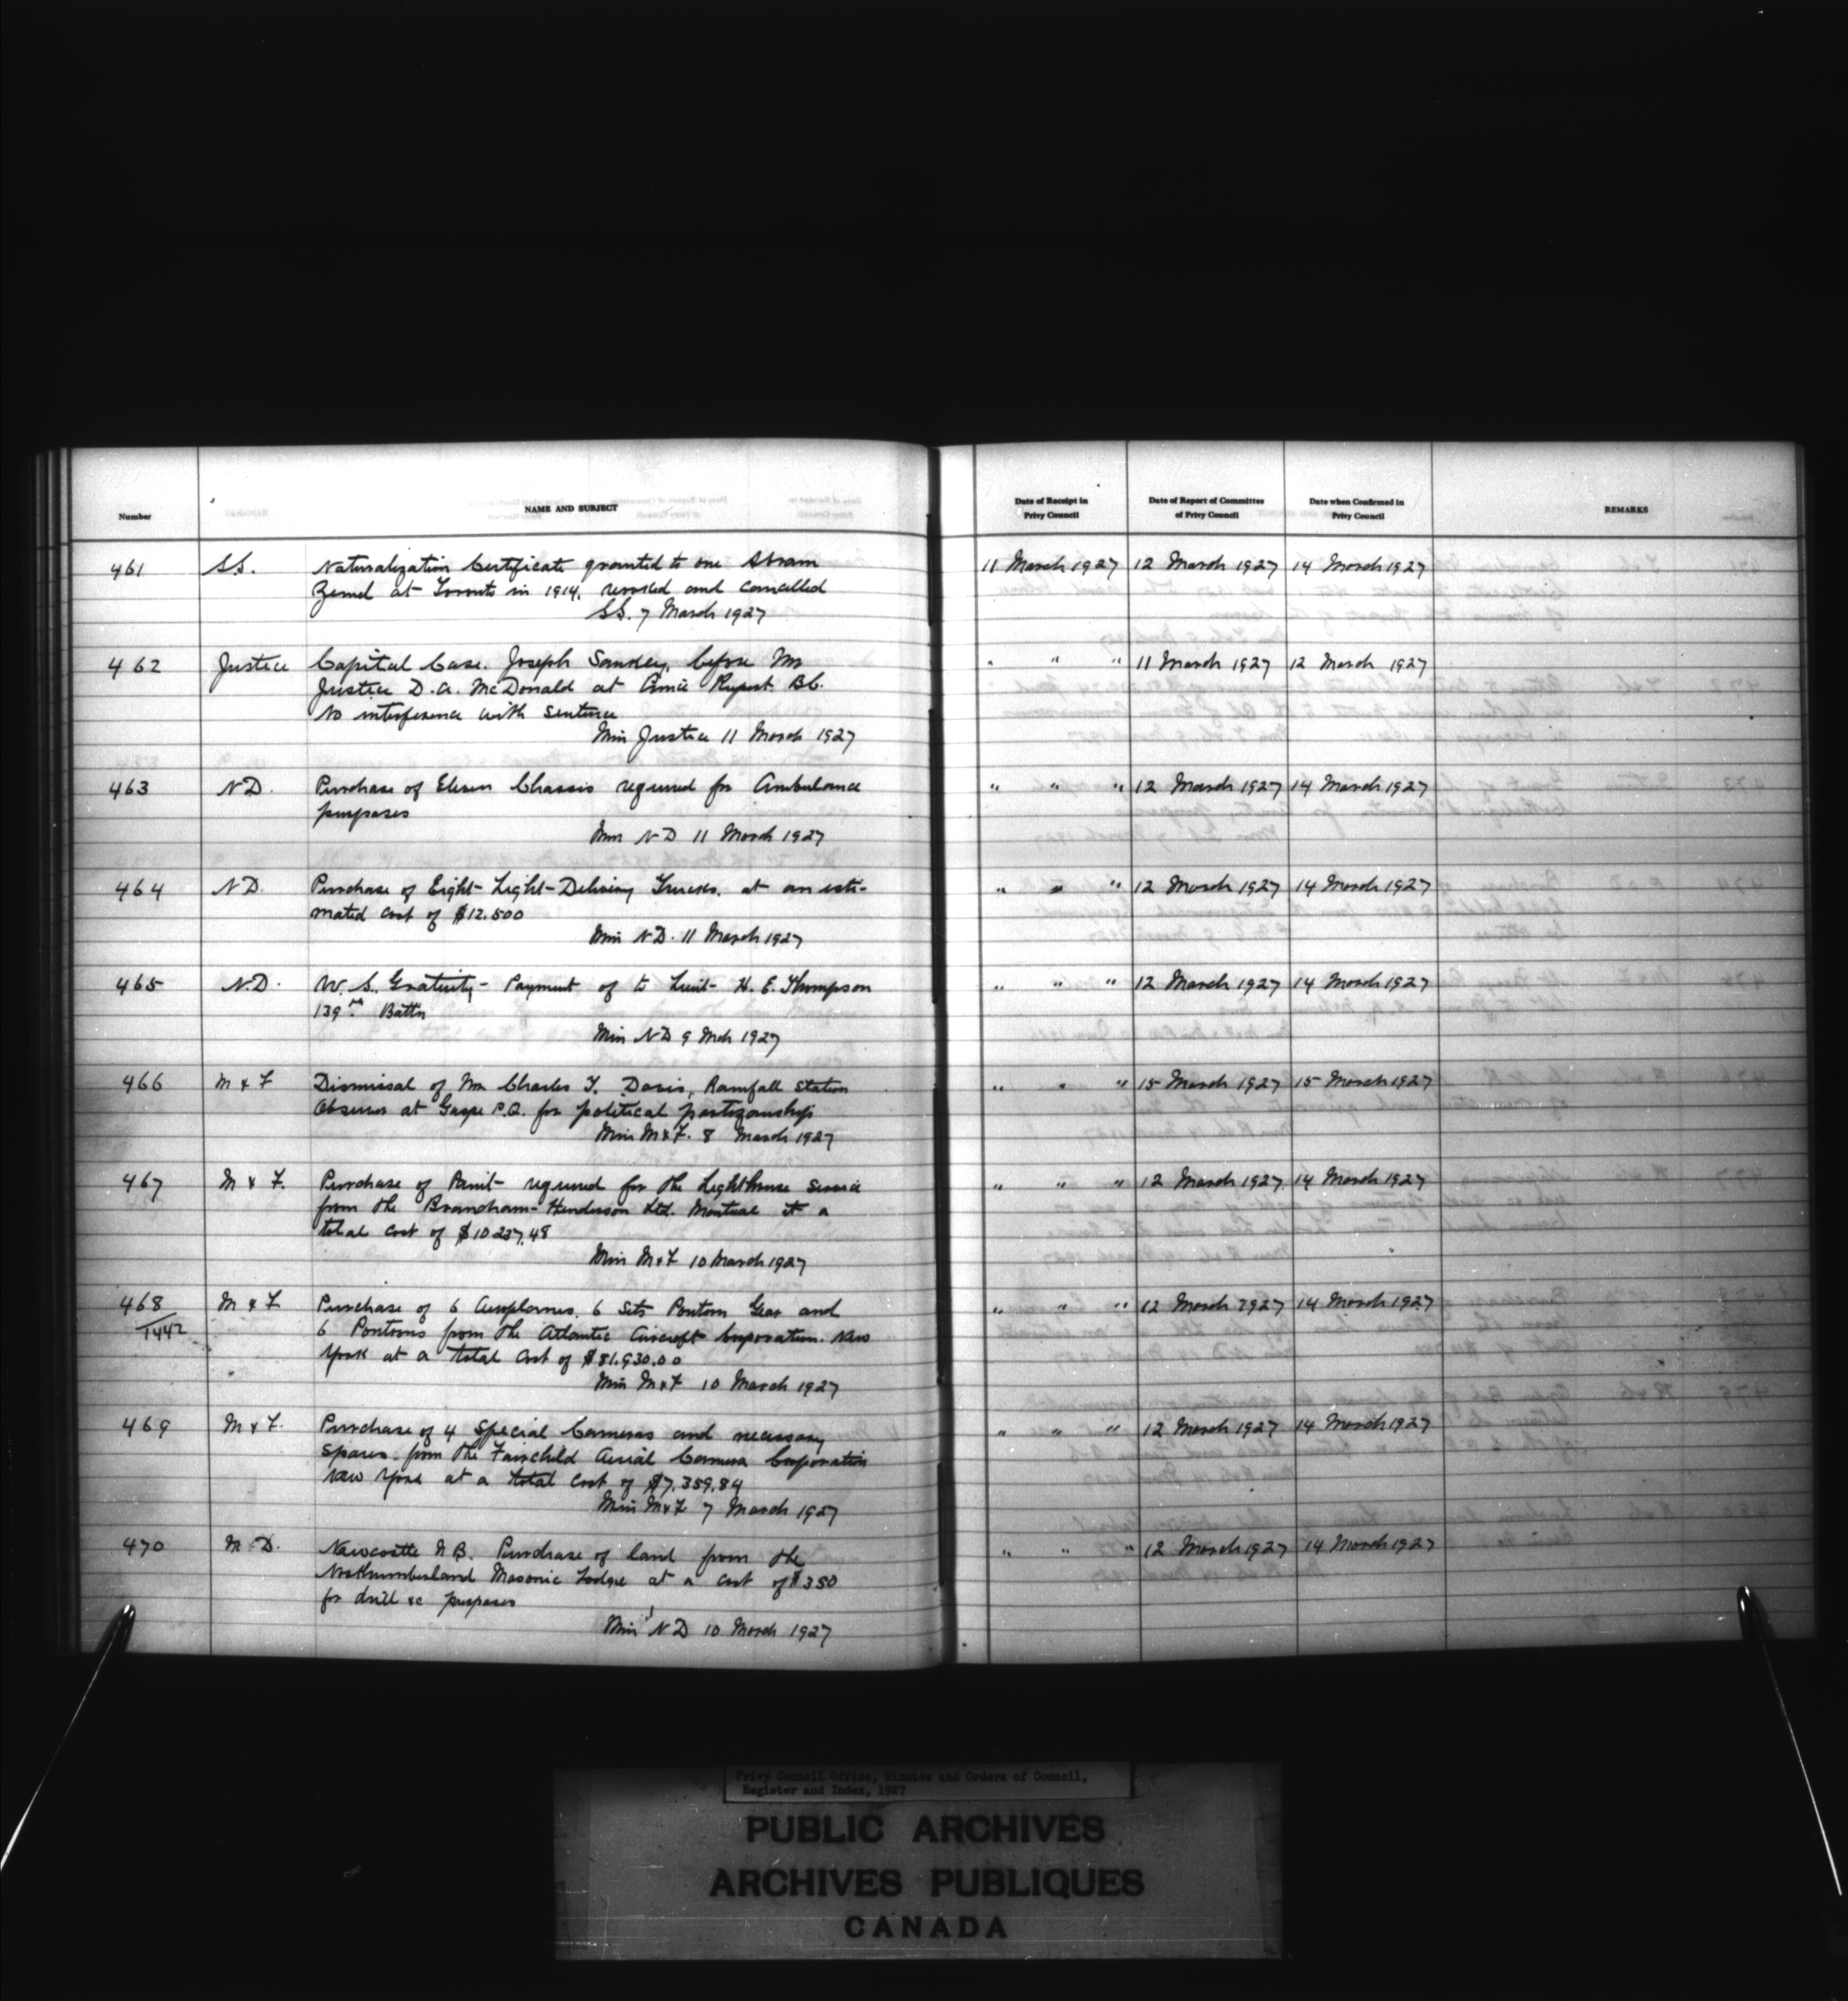 Number
NAME AND SUBJECT
Date of Receipt in Privy Council
Date of Report of Committee of Privy Council
Date when Confirmed in Privy Council
REMARKS
461 S.S. Naturalization Certificate granted to one Abram 11 March 1927 12 March 1927 14 March 1927
Zemel at Toronto in 1914. revoked and cancelled
SS. 7 March 1927
462 Justice Capital Case. Joseph Sankey, before Mr " " " 11 March 1927 12 March 1927
Justice D.A. McDonald at Prince Rupert B.C.
No interference with sentence
Min Justice 11 March 1927
463 N.D. Purchase of Eleven Chassis required for Ambulance " " " 12 March 1927 14 March 1927
purposes
Min N D 11 March 1927
464 N.D. Purchase of Eight Light Delivery Trucks. at an esti- " " " 12 March 1927 14 March 1927
mated cost of $12.500
Min N.D. 11 March 1927
465 N.D. W. S. Gratuity - Payment of to Lieut H. E. Thompson " " " 12 March 1927 14 March 1927
139th Battn
Min N D 9 Mch 1927
466 M & F Dismissal of Mr Charles T. Davis, Rainfall Station " " " 15 March 1927 15 March 1927
Observer at Gaspe P.Q. for political partizanship
Min M & F. 8 March 1927
467 M & F. Purchase of Paint required for the Lighthouse Service " " " 12 March 1927 14 March 1927
from the Brandram-Henderson Ltd. Montreal at a
total cost of $10237.48
Min M & F 10 March 1927
468/1442 M & F Purchase of 6 Aeroplanes. 6 Sets Pontoon Gear and " " " 12 March 1927 14 March 1927
6 Pontoons from the Atlantic Aircraft Corporation. New
York at a total cost of $81.930.00
Min M & F 10 March 1927
469 M & F. Purchase of 4 Special Cameras and necessary " " " 12 March 1927 14 March 1927
Spares from the Fairchild Aerial Camera Corporation
New York at a total cost of $7.359.84
Min M & F 7 March 1927
470 M D. Newcastle N B. Purchase of land from the " " " 12 March 1927 14 March 1927
Northumberland Masonic Lodge at a cost of $350
for drill &c purposes
Min N D 10 March 1927
Privy Council Office, Minutes and Orders of Council,
Register and Index, 1927
PUBLIC ARCHIVES
ARCHIVES PUBLIQUES
CANADA